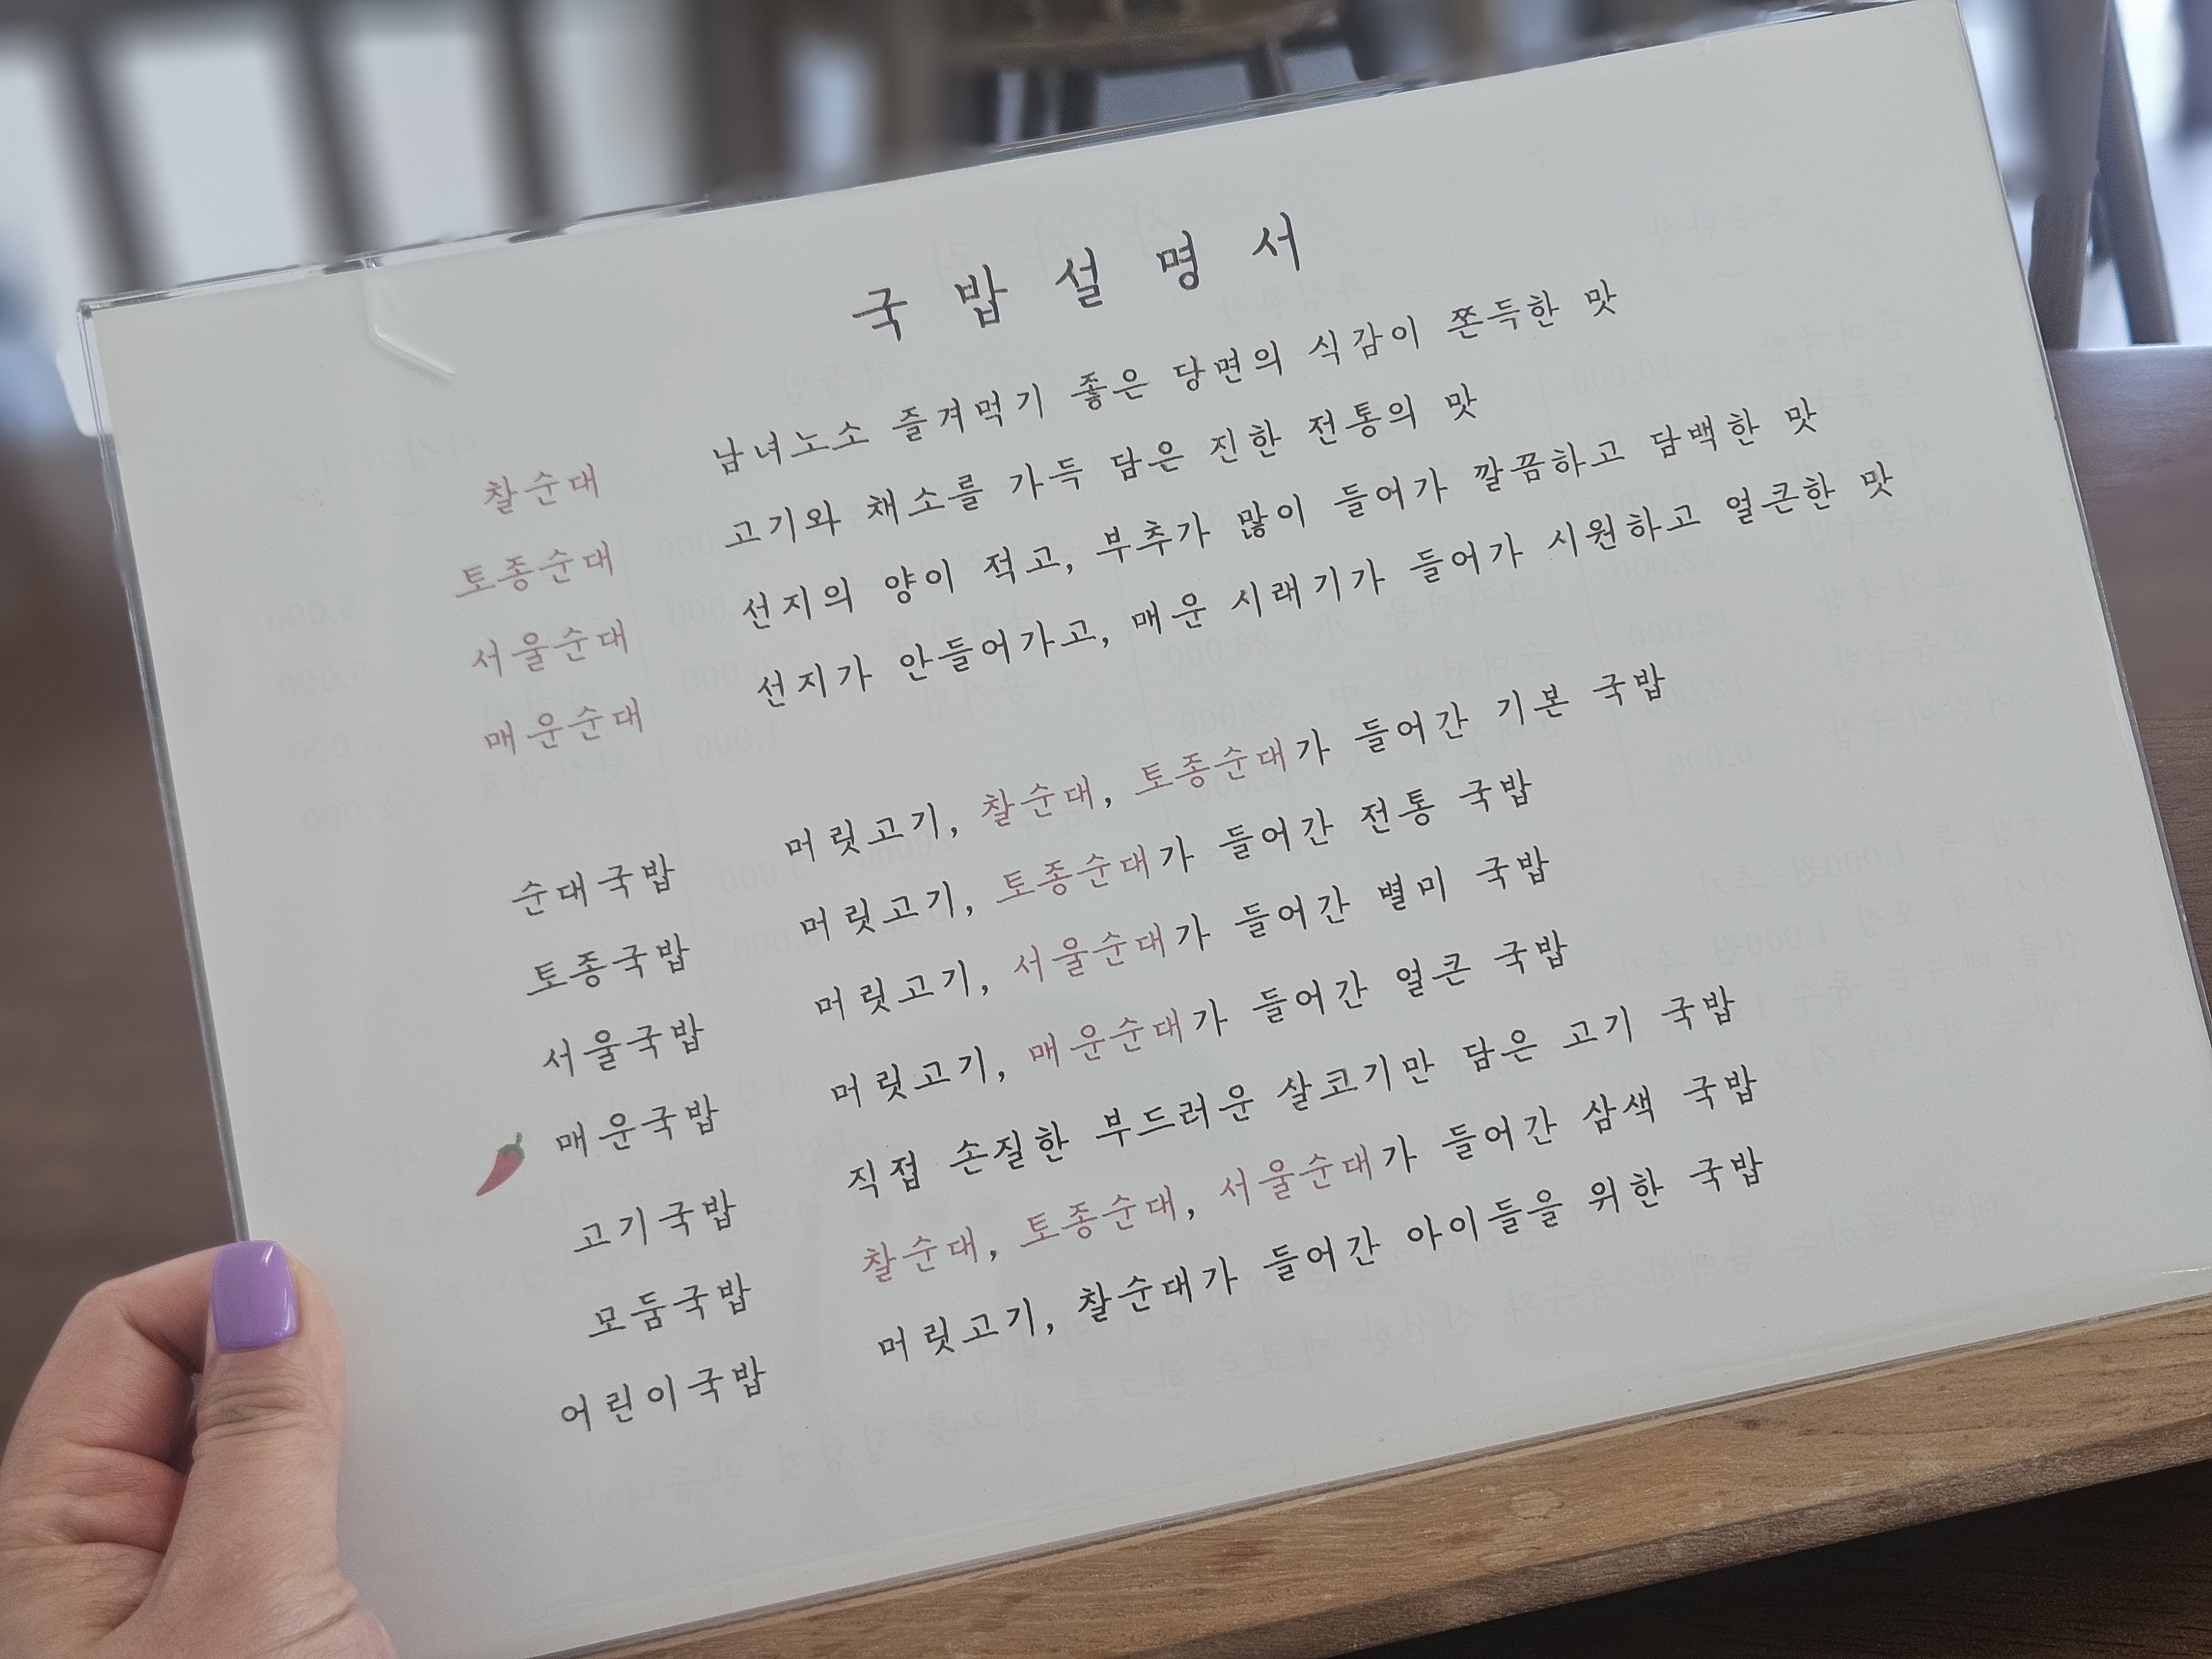 국밥설명서
찰순대 남녀노소 즐겨먹기 좋은 당면의 식감이 쫀득한 맛
토종순대 고기와 채소를 가득 담은 진한 전통의 맛
서울순대 선지의 양이 적고, 부추가 많이 들어가 깔끔하고 담백한 맛
매운순대 선지가 안들어가고, 매운 시래기가 들어가 시원하고 얼큰한 맛
순대국밥 머릿고기, 찰순대, 토종순대가 들어간 기본 국밥
토종국밥 머릿고기, 토종순대가 들어간 전통 국밥
서울국밥 머릿고기, 서울순대가 들어간 별미 국밥
매운국밥 머릿고기, 매운순대가 들어간 얼큰 국밥
고기국밥 직접 손질한 부드러운 살코기만 담은 고기 국밥
모둠국밥 찰순대, 토종순대, 서울순대가 들어간 삼색 국밥
어린이국밥 머릿고기, 찰순대가 들어간 아이들을 위한 국밥